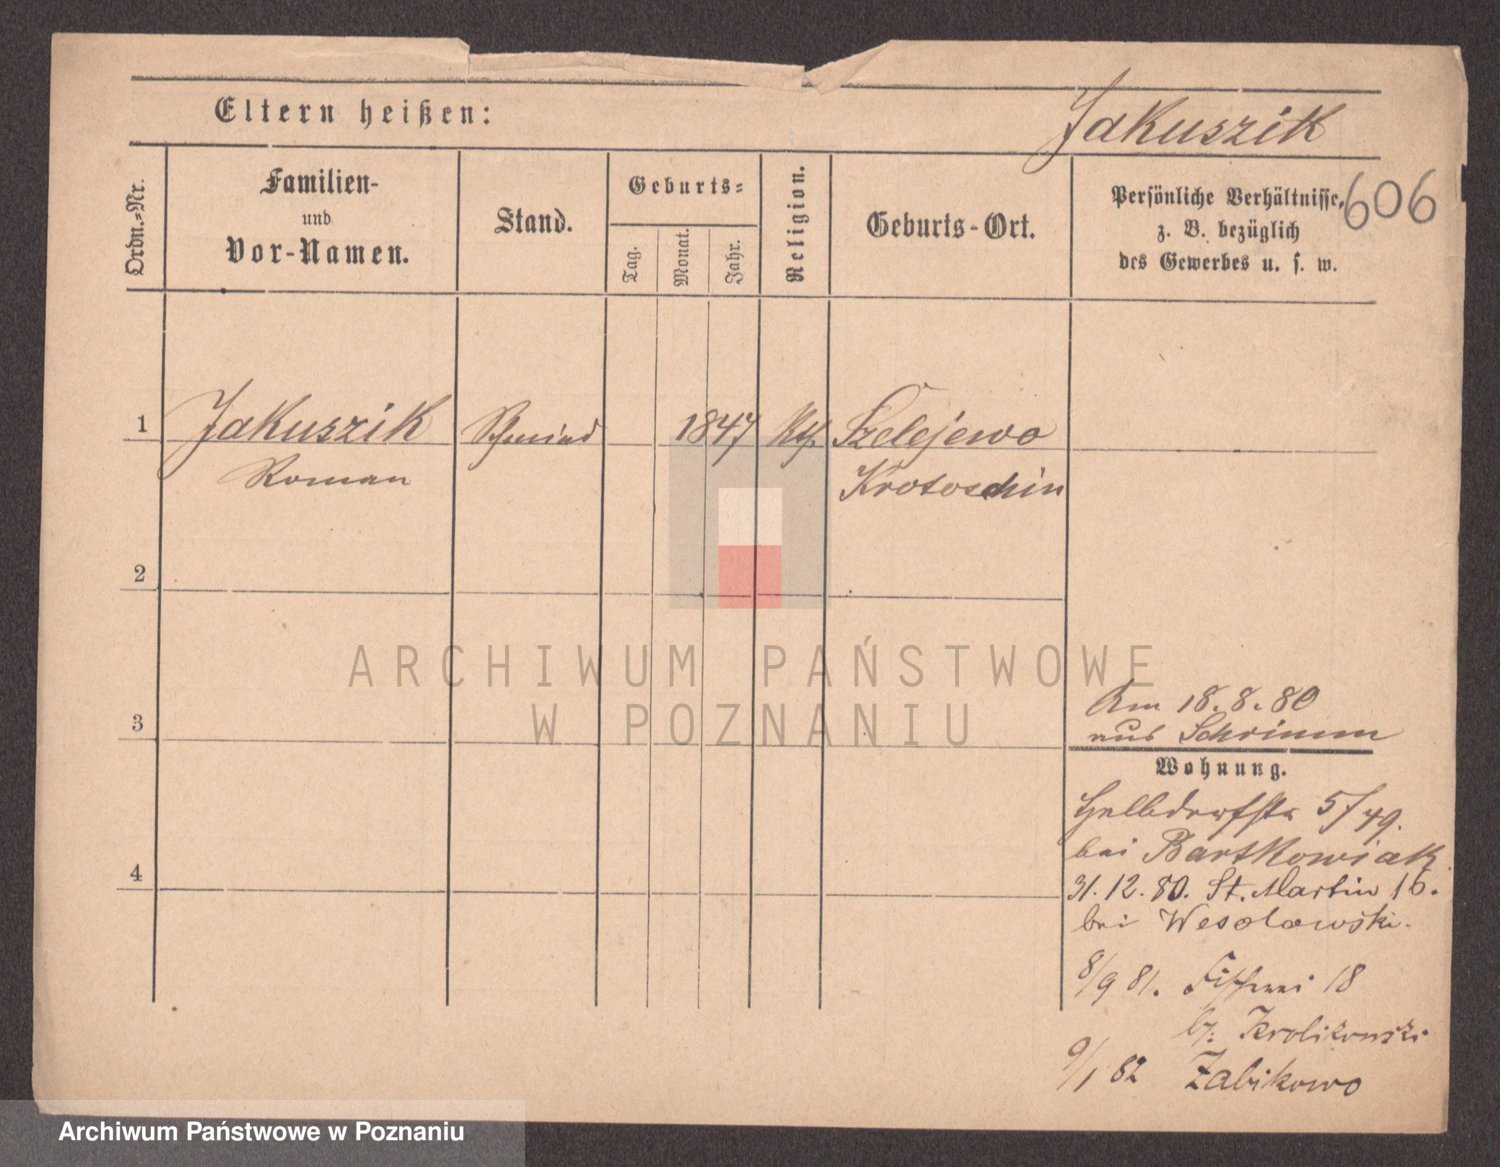 Eltern heißen:
Jakuszik
Ordn.-Nr.
Familien-
und
Vor-Namen.
Stand.
Geburts-
Tag.
Monat.
Jahr.
Religion.
Geburts-Ort.
Persönliche Verhältnisse,
z. B. bezüglich
des Gewerbes u. s. w.
606
1
Jakuszik
Schmied
1847
Kth.
Szelejewo
Roman
Krotoschin
2
3
4
ARCHIWUM PAŃSTWOWE
W POZNANIU
Am 18.8.80
aus Schrimm
Wohnung.
Halbdorfstr 5/49.
bei Bartkowiak
31.12.80. St. Martin 16.
bei Wesolowski.
8/9 81. Fischerei 18
b/: Krolikowski
9/1 82 Zabikowo
Archiwum Państwowe w Poznaniu